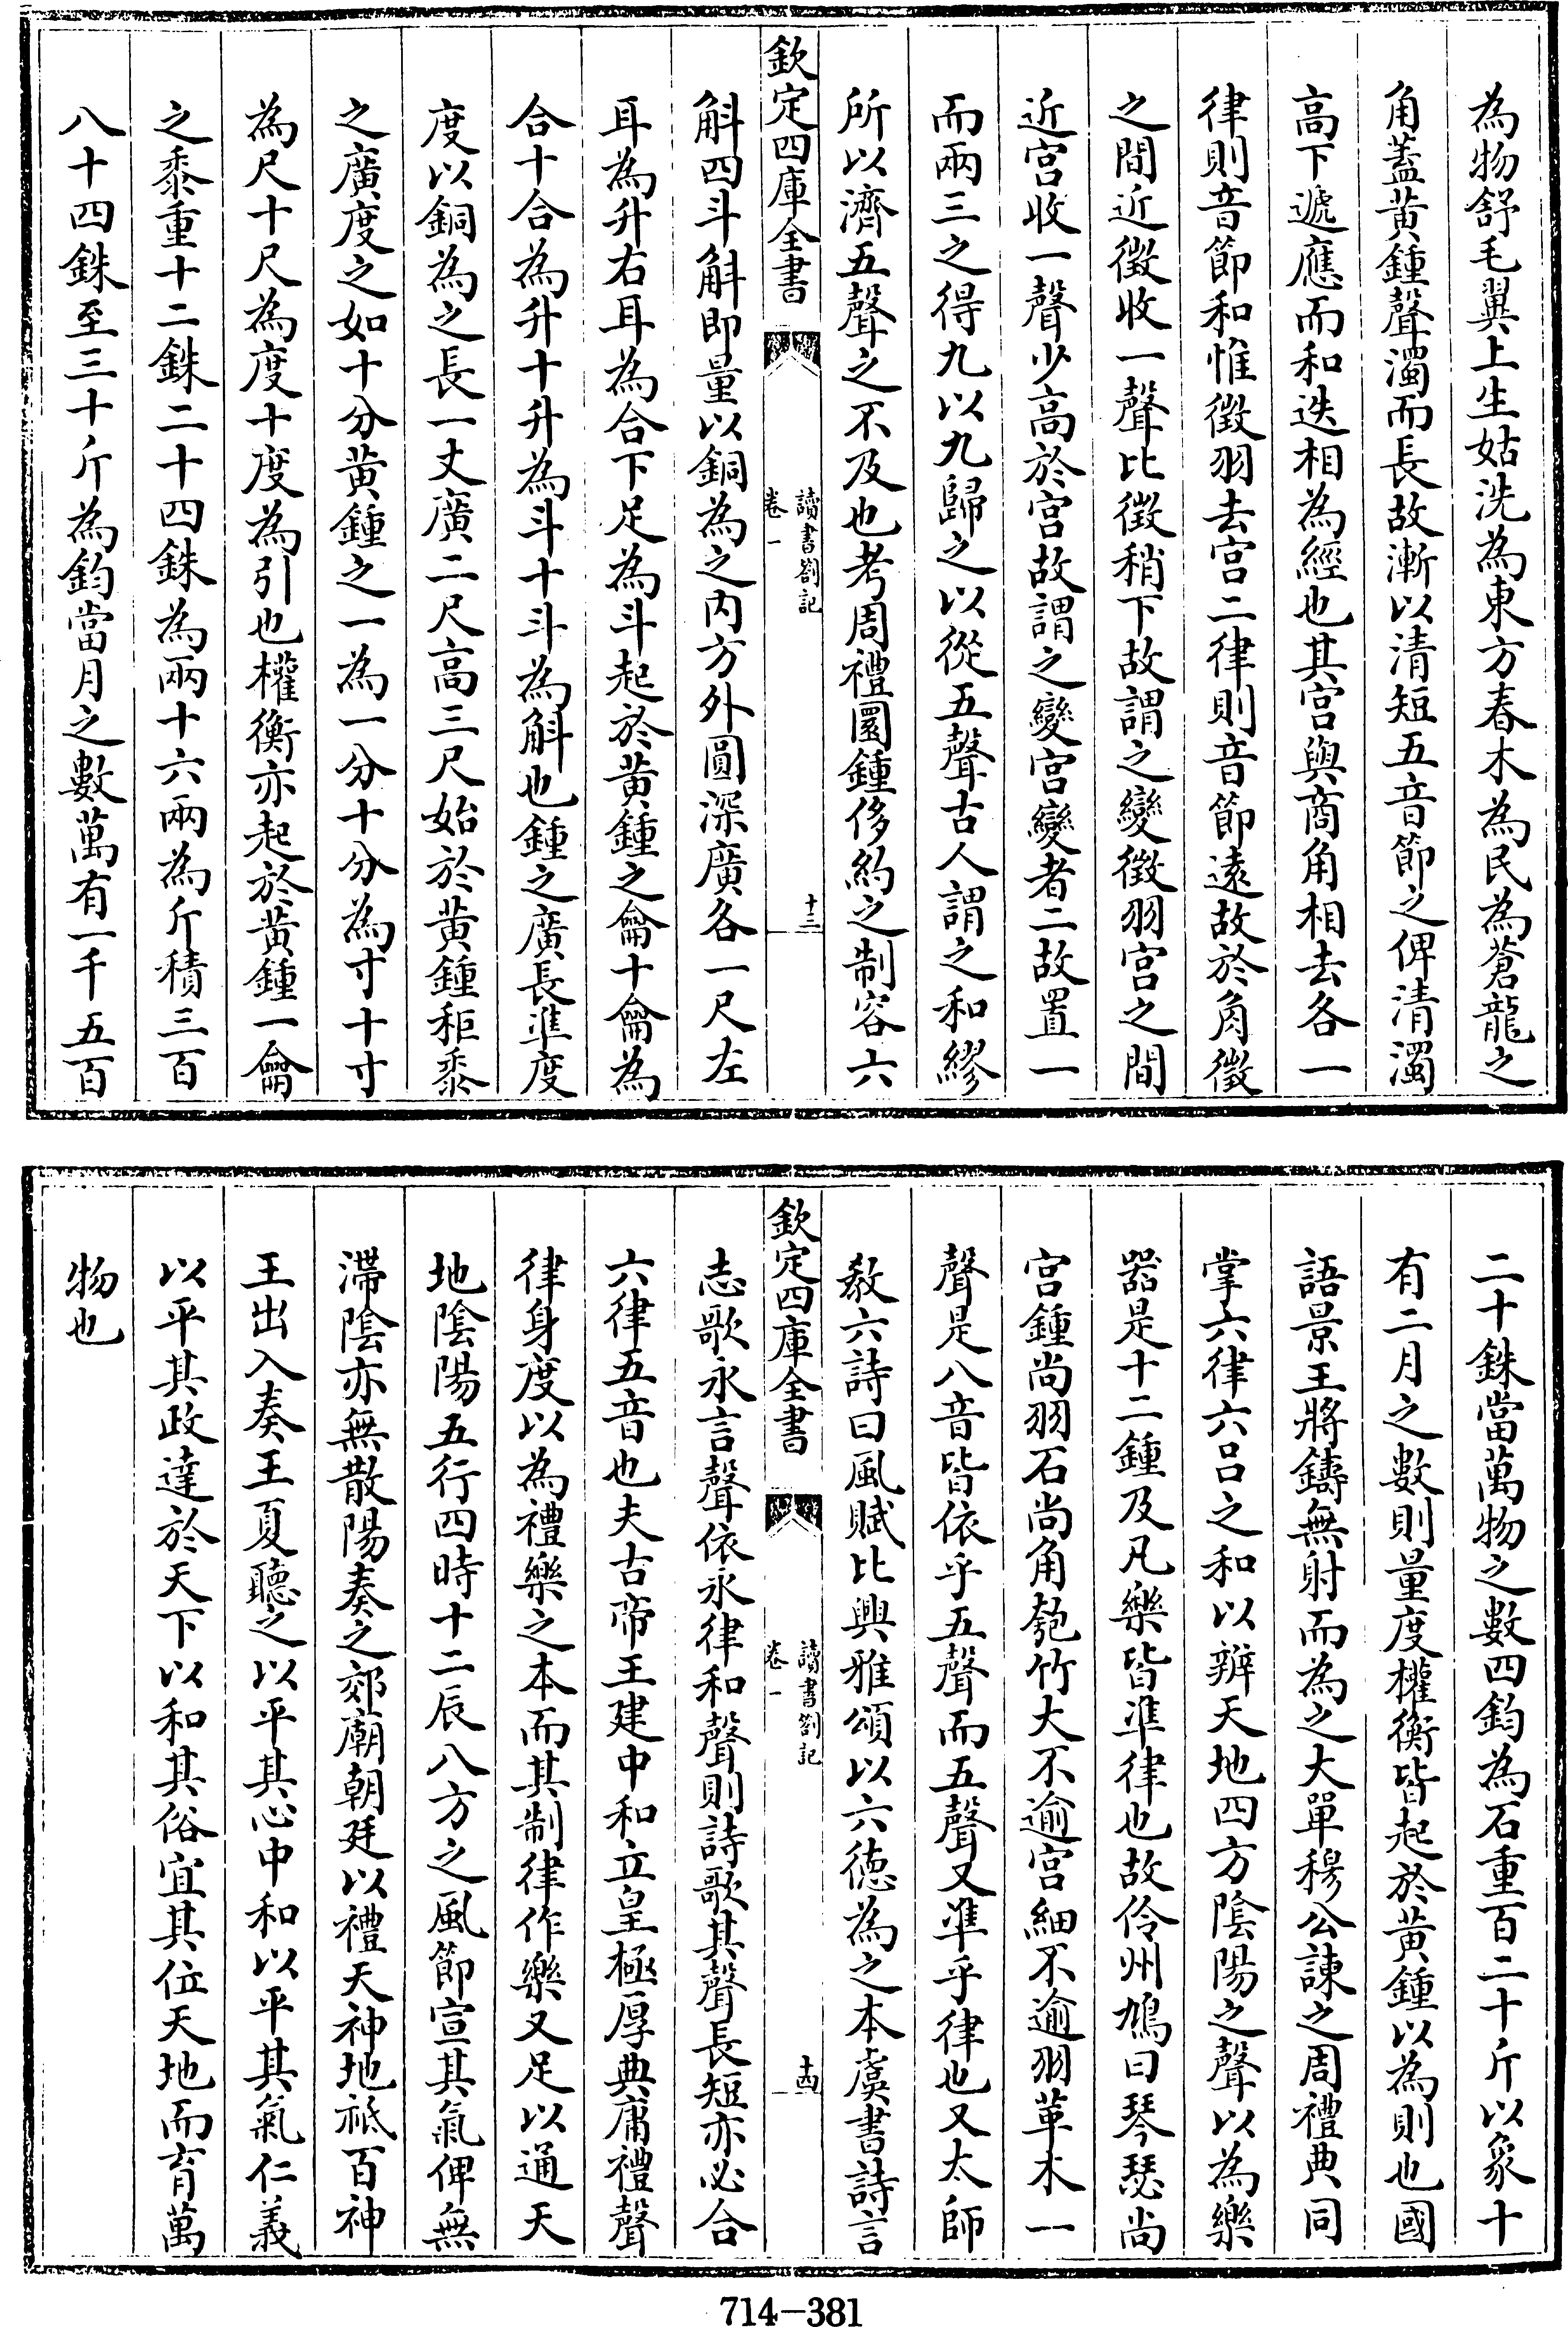 為物舒毛翼上生姑洗為東方春木為民為蒼龍之
角蓋黄鍾聲濁而長故漸以清短五音節之俾清濁
高下遞應而和迭相為經也其宫與商角相去各一
律則音節和惟徵羽去宫二律則音節逺故於角徵
之間近徵收一聲比徵稍下故謂之變徵羽宫之間
近宫收一聲少高於宫故謂之變宫變者二故置一
而兩三之得九以九歸之以從五聲古人謂之和繆
所以濟五聲之不及也考周禮圜鍾侈約之制容六
欽定四庫全書
讀書劄記
卷一
十三
斛四斗斛即量以銅為之内方外圓深廣各一尺左
耳為升右耳為合下足為斗起於黄鍾之龠十龠為
合十合為升十升為斗十斗為斛也鍾之廣長準度
度以銅為之長一丈廣二尺高三尺始於黄鍾秬黍
之廣度之如十分黄鍾之一為一分十分為寸十寸
為尺十尺為度十度為引也權衡亦起於黄鍾一龠
之黍重十二銖二十四銖為兩十六兩為斤積三百
八十四銖至三十斤為鈞當月之數萬有一千五百
二十銖當萬物之數四鈞為石重百二十斤以象十
有二月之數則量度權衡皆起於黄鍾以為則也國
語景王將鑄無射而為之大單穆公諫之周禮典同
掌六律六吕之和以辨天地四方陰陽之聲以為樂
器是十二鍾及凡樂皆準律也故伶州鳩曰琴瑟尚
宫鍾尚羽石尚角匏竹大不逾宫細不逾羽革木一
聲是八音皆依乎五聲而五聲又準乎律也又太師
教六詩曰風賦比興雅頌以六徳為之本虞書詩言
欽定四庫全書
讀書劄記
卷一
十四
志歌永言聲依永律和聲則詩歌其聲長短亦必合
六律五音也夫古帝王建中和立皇極厚典庸禮聲
律身度以為禮樂之本而其制律作樂又足以通天
地陰陽五行四時十二辰八方之風節宣其氣俾無
滯陰亦無散陽奏之郊廟朝廷以禮天神地祗百神
王出入奏王夏聽之以平其心中和以平其氣仁義
以平其政達於天下以和其俗宜其位天地而育萬
物也
714-381